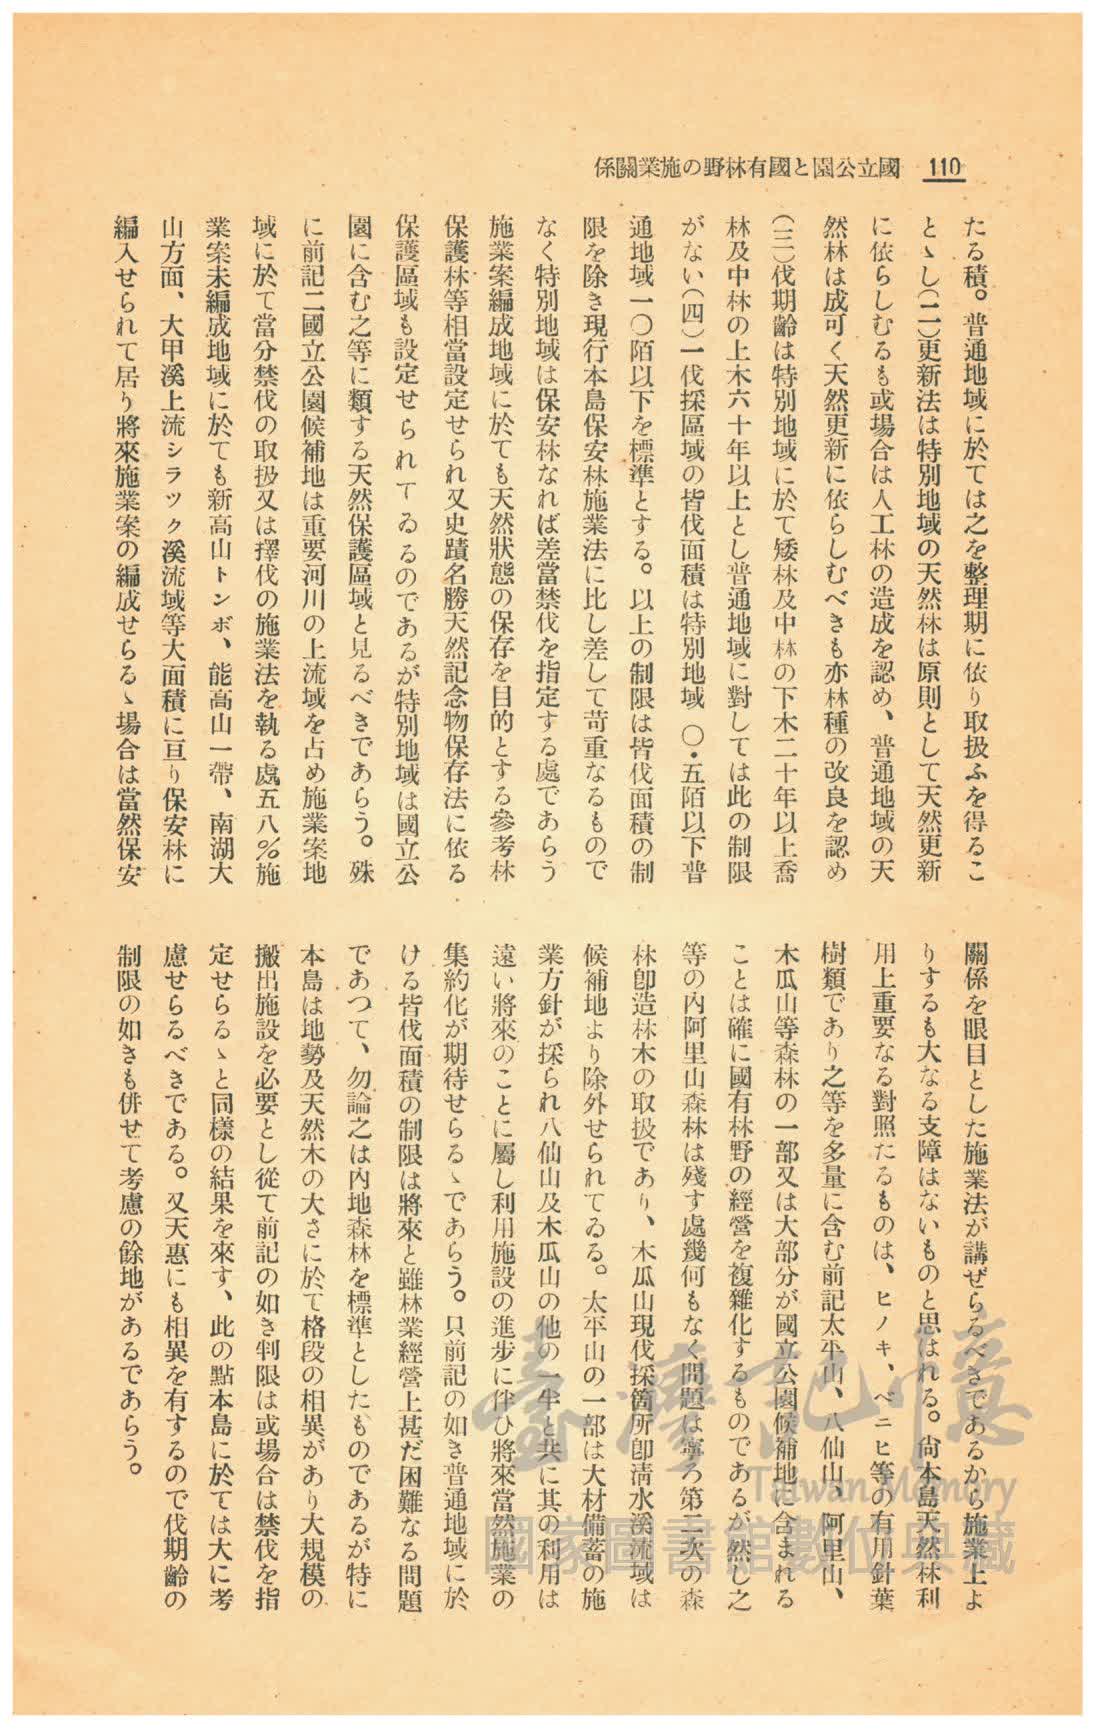 110 國立公園と國有林野の施業關係
たる積。普通地域に於ては之を整理期に依り取扱ふを得るこ
とゝし(二)更新法は特別地域の天然林は原則として天然更新
に依らしむるも或場合は人工林の造成を認め、普通地域の天
然林は成可く天然更新に依らしむべきも亦林種の改良を認め
(三)伐期齡は特別地域に於て矮林及中林の下木二十年以上喬
林及中林の上木六十年以上とし普通地域に對しては此の制限
がない(四)一伐採區域の皆伐面積は特別地域 〇・五陌以下普
通地域一〇陌以下を標準とする。以上の制限は皆伐面積の制
限を除き現行本島保安林施業法に比し差して苛重なるもので
なく特別地域は保安林なれば差當禁伐を指定する處であらう
施業案編成地域に於ても天然狀態の保存を目的とする參考林
保護林等相當設定せられ又史蹟名勝天然記念物保存法に依る
保護區域も設定せられてゐるのであるが特別地域は國立公
園に含む之等に類する天然保護區域と見るべきであらう。殊
に前記二國立公園候補地は重要河川の上流域を占め施業案地
域に於て當分禁伐の取扱又は擇伐の施業法を執る處五八%施
業案未編成地域に於ても新高山トンボ、能高山一帶、南湖大
山方面、大甲溪上流シラック溪流域等大面積に亘り保安林に
編入せられて居り將來施業案の編成せらるゝ場合は當然保安
關係を眼目とした施業法が講ぜらるべきであるから施業上よ
りするも大なる支障はないものと思はれる。尙本島天然林利
用上重要なる對照たるものは、ヒノキ、ベニヒ等の有用針葉
樹類であり之等を多量に含む前記太平山、八仙山、阿里山、
木瓜山等森林の一部又は大部分が國立公園候補地に含まれる
ことは確に國有林野の經營を複雜化するものであるが然し之
等の內阿里山森林は殘す處幾何もなく問題は寧ろ第二次の森
林卽造林木の取扱であり、木瓜山現伐採箇所卽淸水溪流域は
候補地より除外せられてゐる。太平山の一部は大材備蓄の施
業方針が採られ八仙山及木瓜山の他の一半と共に其の利用は
遠い將來のことに屬し利用施設の進步に伴ひ將來當然施業の
集約化が期待せらるゝであらう。只前記の如き普通地域に於
ける皆伐面積の制限は將來と雖林業經營上甚だ困難なる問題
であつて、勿論之は內地森林を標準としたものであるが特に
本島は地勢及天然木の大さに於て格段の相異があり大規模の
搬出施設を必要とし從て前記の如き判限は或場合は禁伐を指
定せらるゝと同樣の結果を來す、此の點本島に於ては大に考
慮せらるべきである。又天惠にも相異を有するので伐期齡の
制限の如きも併せて考慮の餘地があるであらう。
臺灣記憶
Taiwan Memory
國家圖書館數位典藏